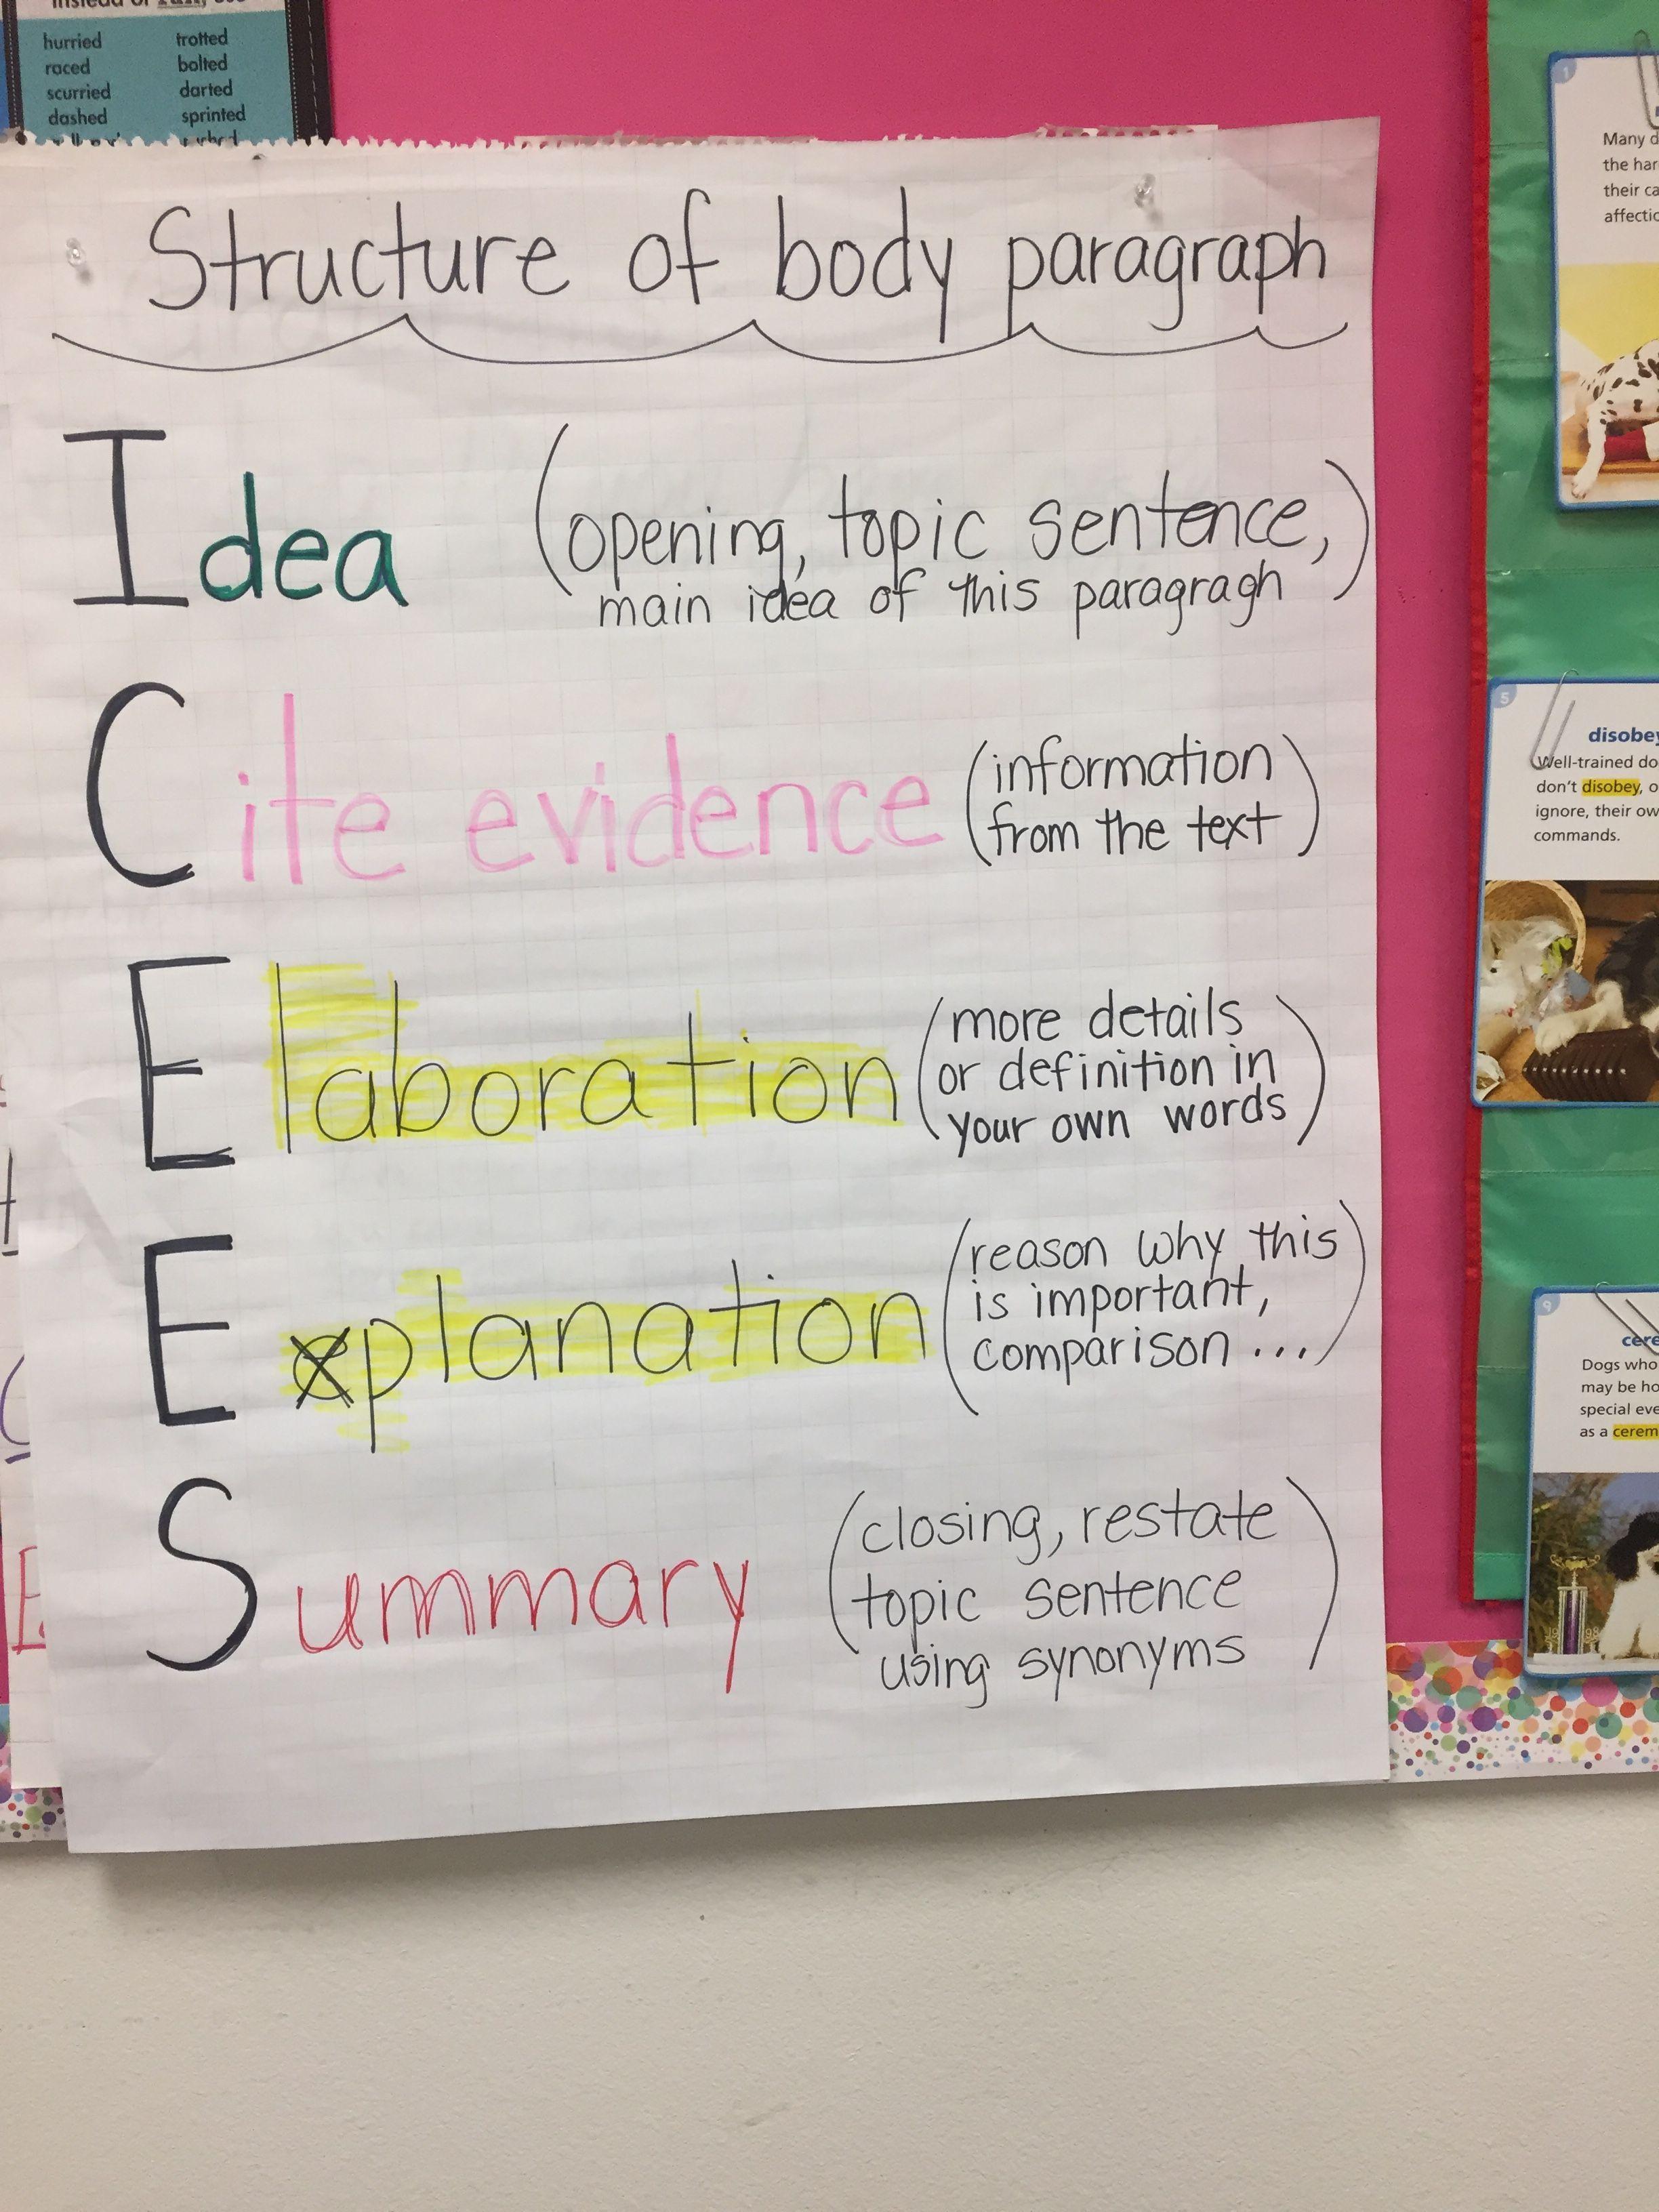 hurried trotted
raced bolted
scurried darted
dashed sprinted
Structure of body paragraph
Idea (opening, topic sentence,
main idea of this paragragh)
Cite evidence (information
from the text)
Elaboration (more details
or definition in
your own words)
Explanation (reason why this
is important,
comparison...)
Summary (closing, restate
topic sentence
using synonyms)
1
Many
the
their
5
disobey
Well-trained
don't disobey,
ignore, their
commands.
9
Dogs who
may be
special
as a